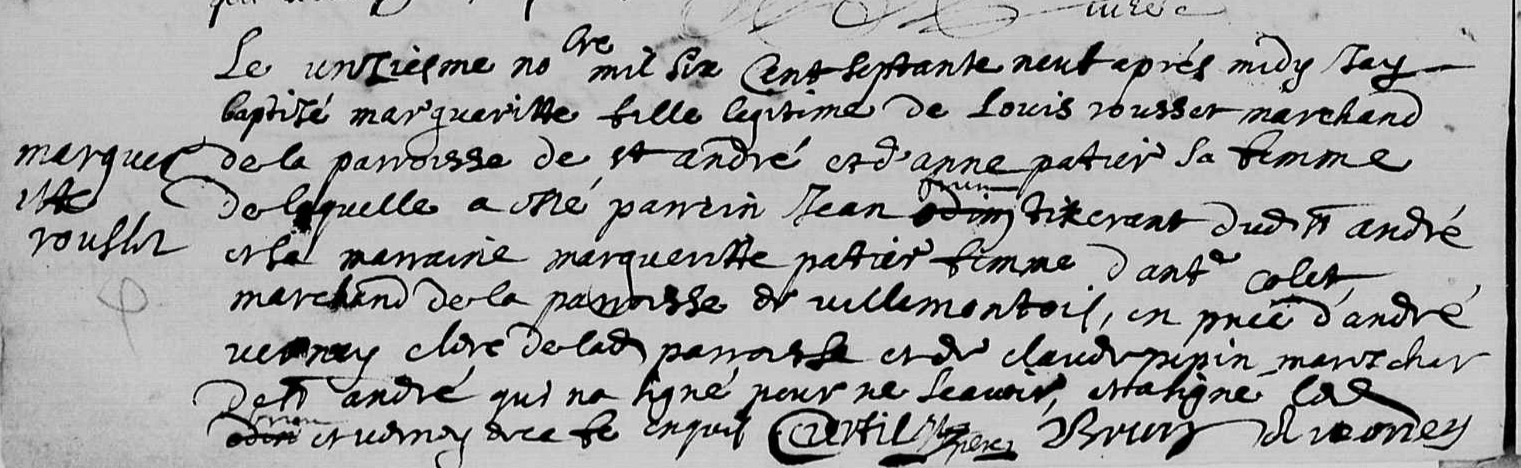 curé
Le unziesme nobre mil six Cent septante neuf après midy Jay
baptisé margueritte fille legitime de Louis rousset marchand
de la parroisse de st andré et d'anne patier sa femme
marguer
itte
rousset
de laquelle a esté parrein Jean brun tixerant dud st andré
et sa marraine margueritte patier femme d'antne colet
marchand de la parroisse de villemontois, en pnce d'andré
vernay clerc de lad parroisse et de claude pepin mareschar
de st andré qui na signé pour ne scavoir, et a signé led
brun et vernay de ce enquis
Brun A verney